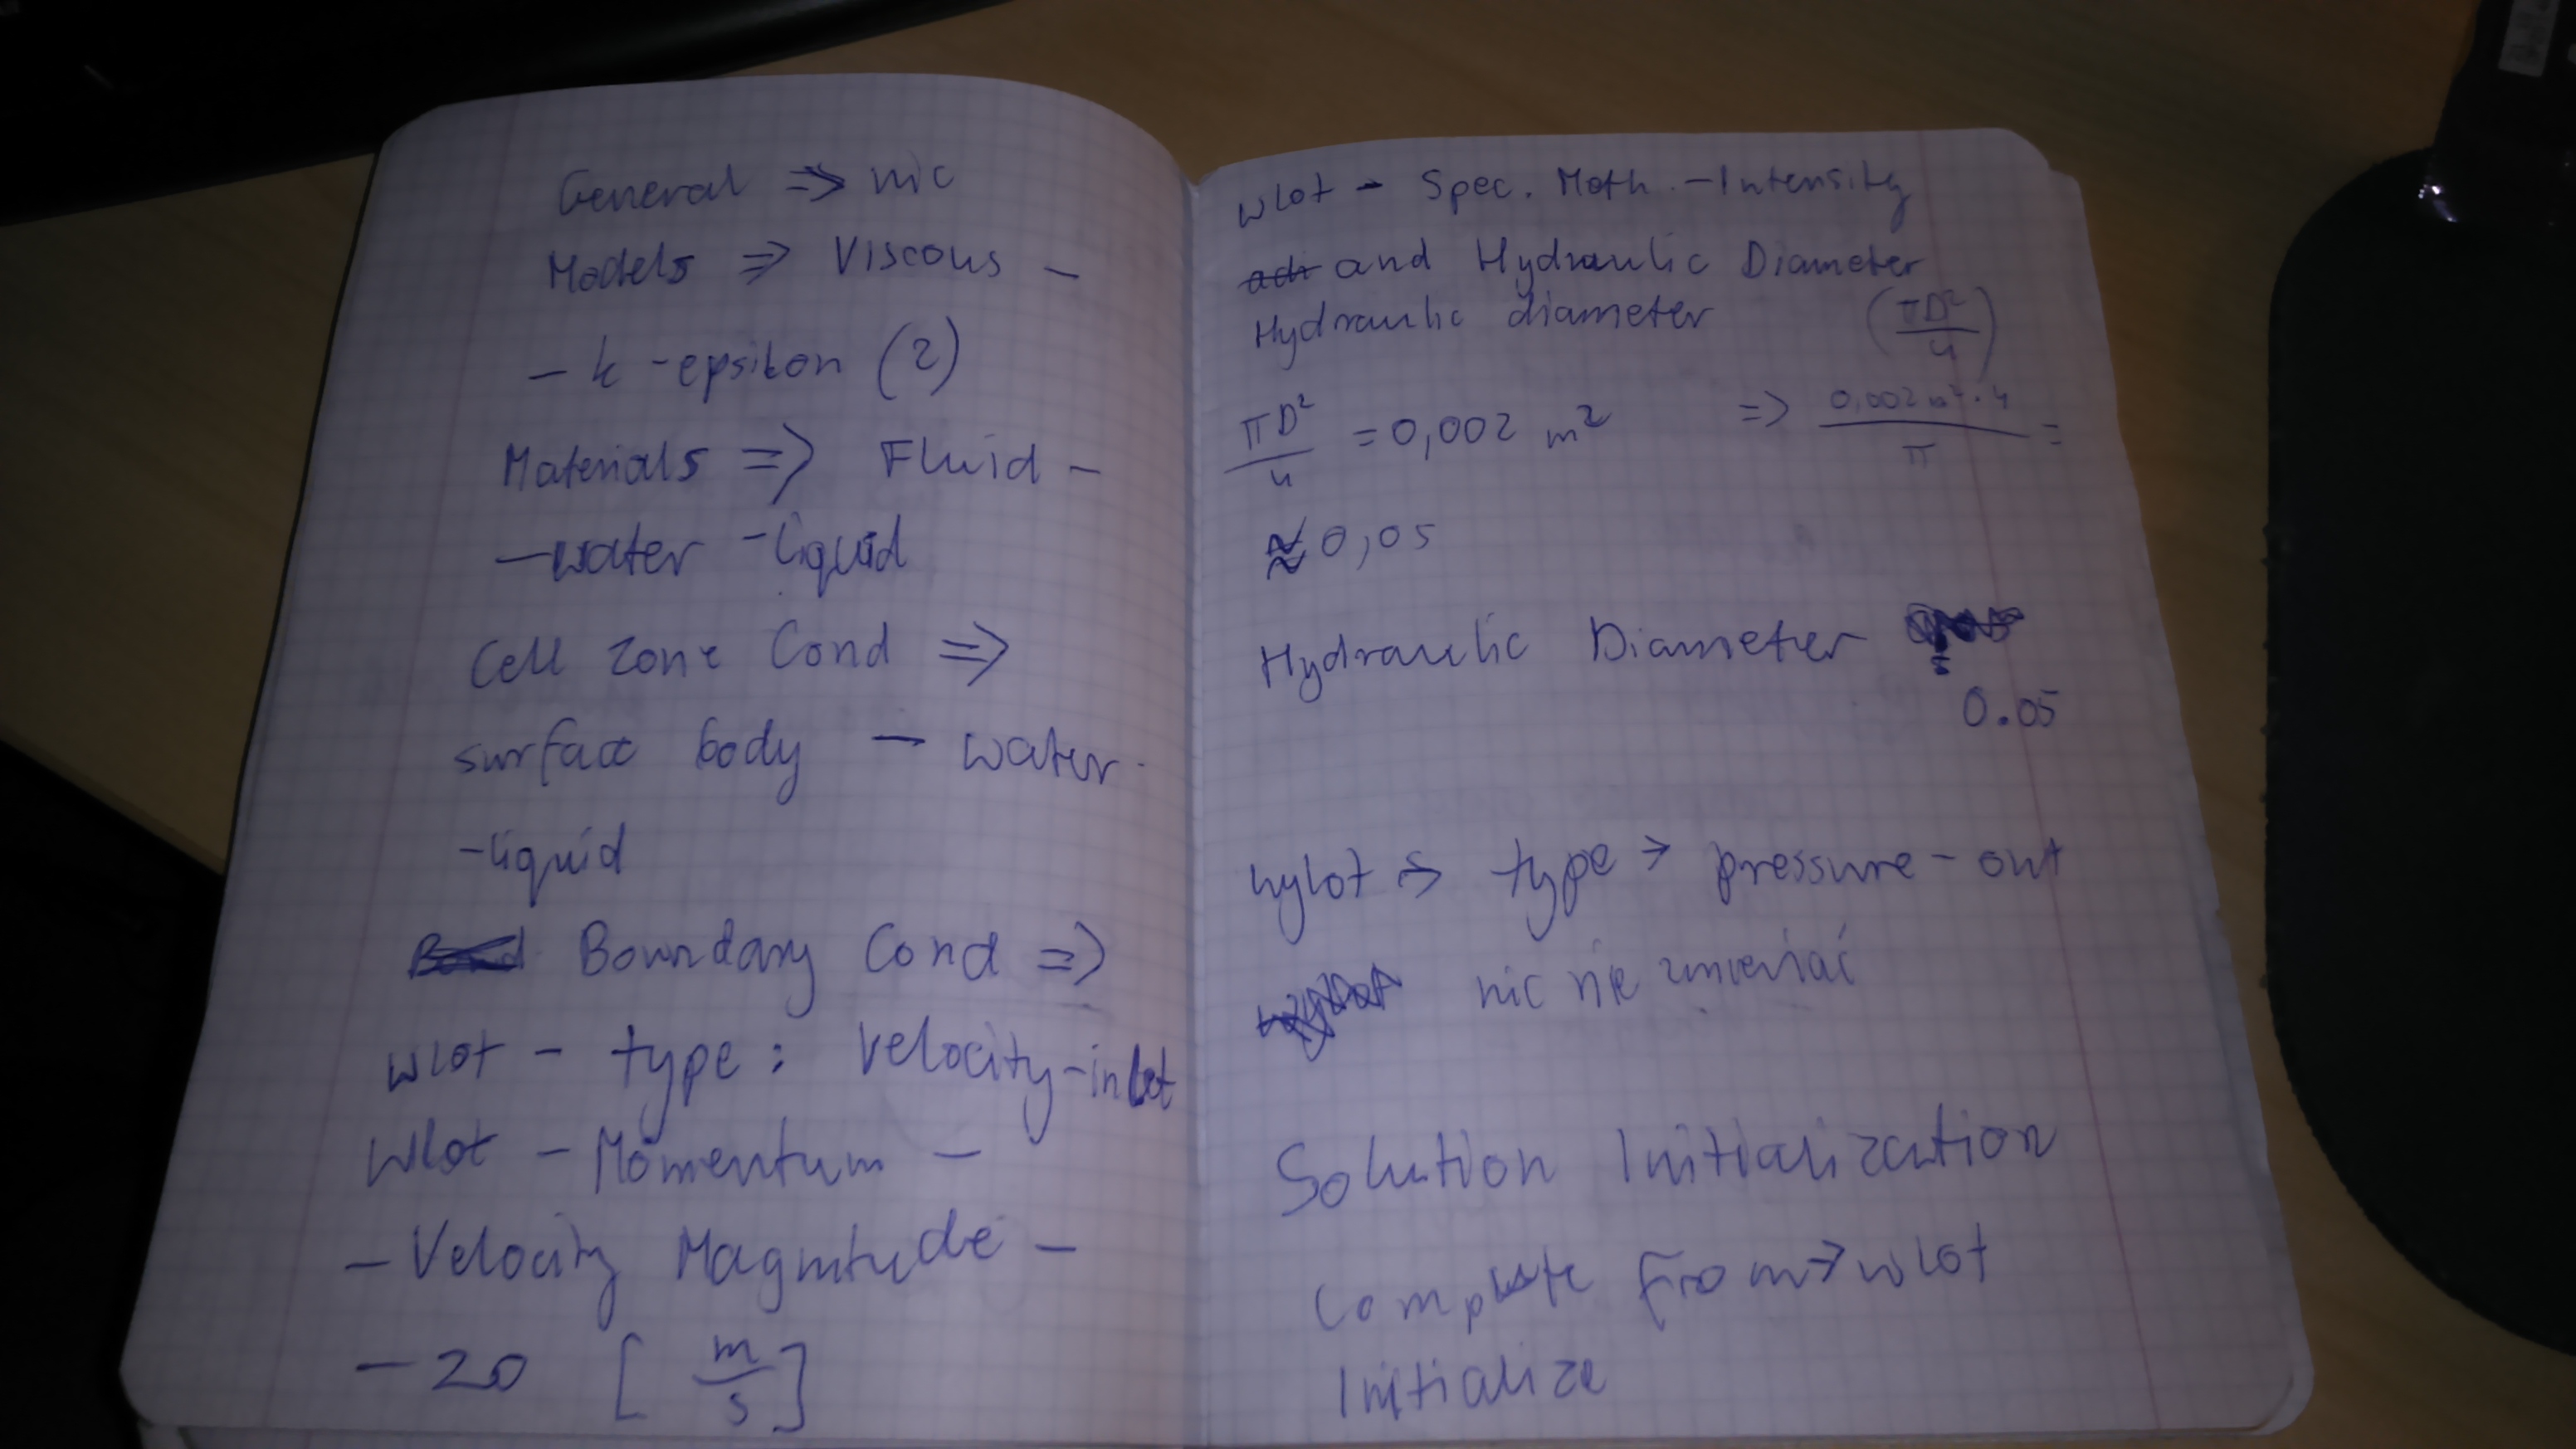 General => nic
Models => Viscous -
- k -epsilon (2)
Materials => Fluid -
- water -liquid
Cell zone Cond =>
surface body - water-
-liquid
Boundary Cond =>
wlot - type: velocity-inlet
Wlot - Momentum -
- Velocity Magnitude -
- 20 [m/s]
wlot - Spec. Meth. - Intensity
and Hydraulic Diameter
Hydraulic diameter (πD²/4)
πD²/4 = 0,002 m² => 0,002 m² · 4 / π =
≈ 0,05
Hydraulic Diameter
0.05
wylot -> type -> pressure-out
nic nie zmieniać
Solution Initialization
Compute From -> wlot
Initialize